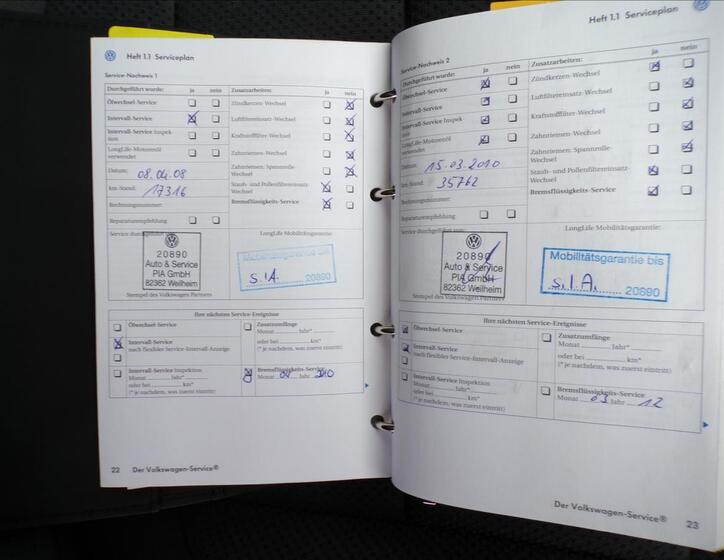 Heft 1.1 Serviceplan
Service-Nachweis 1
Durchgeführt wurde: ja nein Zusatzarbeiten: ja nein
Ölwechsel-Service Zündkerzen-Wechsel
Intervall-Service Luftfiltereinsatz-Wechsel
Intervall-Service Inspek-
tion Kraftstofffilter-Wechsel
LongLife-Motorenöl
verwendet Zahnriemen-Wechsel
Datum: 08.04.08 Zahnriemen: Spannrolle-
Wechsel
km-Stand: 17316 Staub- und Pollenfiltereinsatz-
Wechsel
Rechnungsnummer: Bremsflüssigkeits-Service
Reparaturempfehlung
Service durchgeführt LongLife Mobilitätsgarantie:
20890
Auto & Service
PIA GmbH
82362 Weilheim
Mobilitätsgarantie bis
s.I.A. 20890
Stempel des Volkswagen Partners
Ihre nächsten Service-Ereignisse
Ölwechsel-Service Zusatzumfänge
Monat Jahr*
Intervall-Service
nach flexibler Service-Intervall-Anzeige oder bei km*
(* je nachdem, was zuerst eintritt)
Intervall-Service Inspektion
Monat Jahr*
oder bei km*
(* je nachdem, was zuerst eintritt)
Bremsflüssigkeits-Service
Monat 04 Jahr 10
22 Der Volkswagen-Service®
Heft 1.1 Serviceplan
Service-Nachweis 2
Durchgeführt wurde: ja nein Zusatzarbeiten: ja nein
Ölwechsel-Service Zündkerzen-Wechsel
Intervall-Service Luftfiltereinsatz-Wechsel
Intervall-Service Inspek-
tion Kraftstofffilter-Wechsel
LongLife-Motorenöl
verwendet Zahnriemen-Wechsel
Datum: 15.03.2010 Zahnriemen: Spannrolle-
Wechsel
km-Stand: 35762 Staub- und Pollenfiltereinsatz-
Wechsel
Rechnungsnummer: Bremsflüssigkeits-Service
Reparaturempfehlung
Service durchgeführt LongLife Mobilitätsgarantie:
20890
Auto & Service
PIA GmbH
82362 Weilheim
Mobilitätsgarantie bis
s.I.A. 20890
Stempel des Volkswagen Partners
Ihre nächsten Service-Ereignisse
Ölwechsel-Service Zusatzumfänge
Monat Jahr*
Intervall-Service
nach flexibler Service-Intervall-Anzeige oder bei km*
(* je nachdem, was zuerst eintritt)
Intervall-Service Inspektion
Monat Jahr*
oder bei km*
(* je nachdem, was zuerst eintritt)
Bremsflüssigkeits-Service
Monat 03 Jahr 12
Der Volkswagen-Service® 23